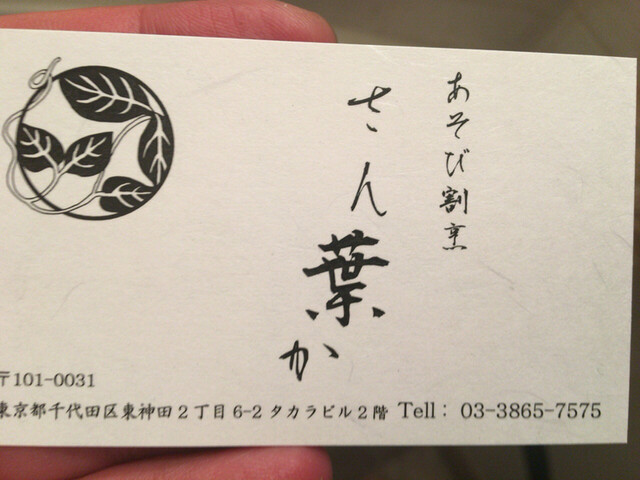 あそび割烹
さん葉か
〒101-0031
東京都千代田区東神田2丁目6-2 タカラビル2階 Tell : 03-3865-7575